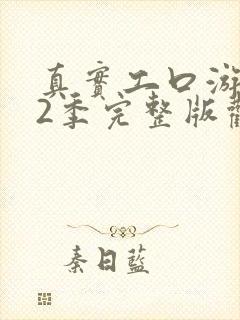 真實工口游
2季完整版
秦日藍